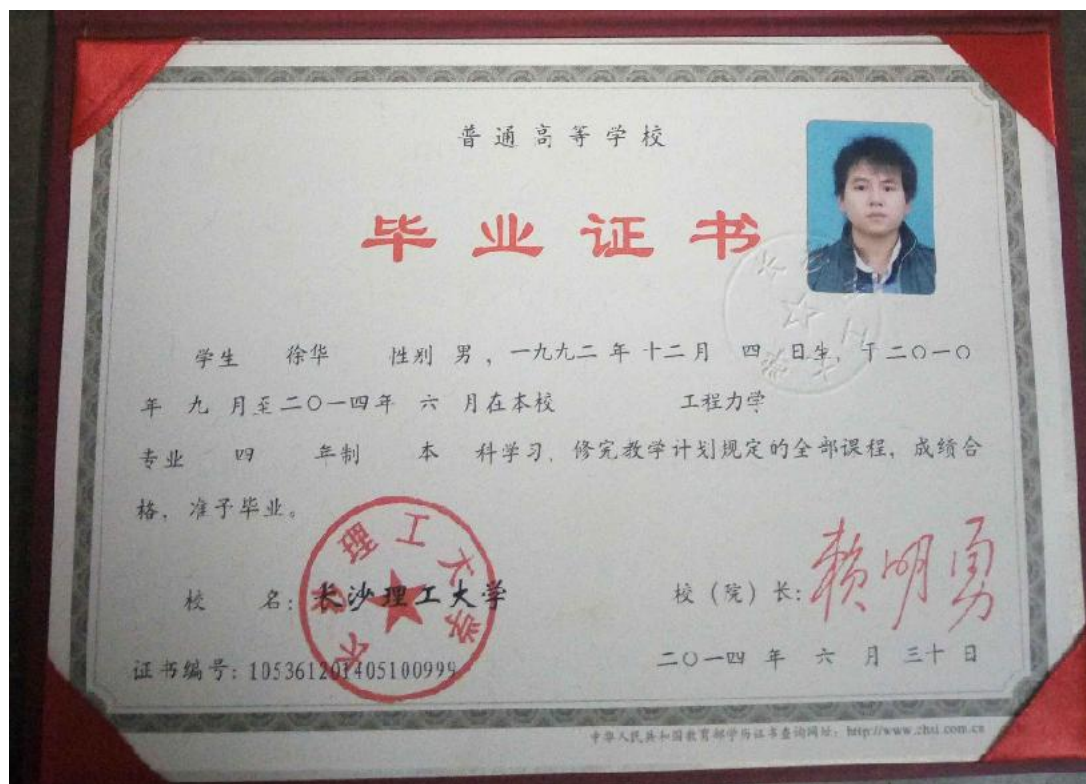 普通高等学校
毕业证书
学生 徐华 性别 男，一九九二 年 十二 月 四 日生，于二〇一〇
年 九 月至二〇一四年 六 月在本校 工程力学
专业 四 年制 本 科学习，修完教学计划规定的全部课程，成绩合
格，准予毕业。
校 名：长沙理工大学
校（院）长：赖明勇
证书编号：105361201405100999
二〇一四 年 六 月 三十 日
中华人民共和国教育部学历证书查询网址：http://www.chsi.com.cn
长沙理工大学